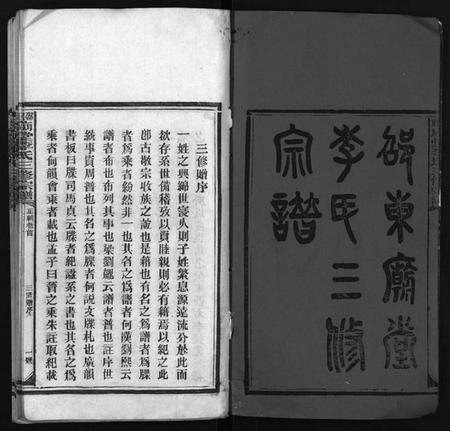 邵東廟堂
李氏三修
宗譜
三修贈序
一姓之興綿世寖久則子姓繁息源遠流分於此而
欲存系世備稽攷以貫睦親則必有藉焉以紀之此
卽古敬宗收族之誼也是藉也有名之爲譜者爲牒
者爲乘者紛然非一也其名之爲譜者何漢劉熙云
譜者布也布列其事也梁劉勰云譜者註序世
統事資周普也其名之爲牒者何說文牒札也廣韻
書板曰牒司馬貞云牒者紀譜系之書也其名之爲
乘者何韻會乘者載也孟子曰晉之乘朱註取紀載
三修贈序
一